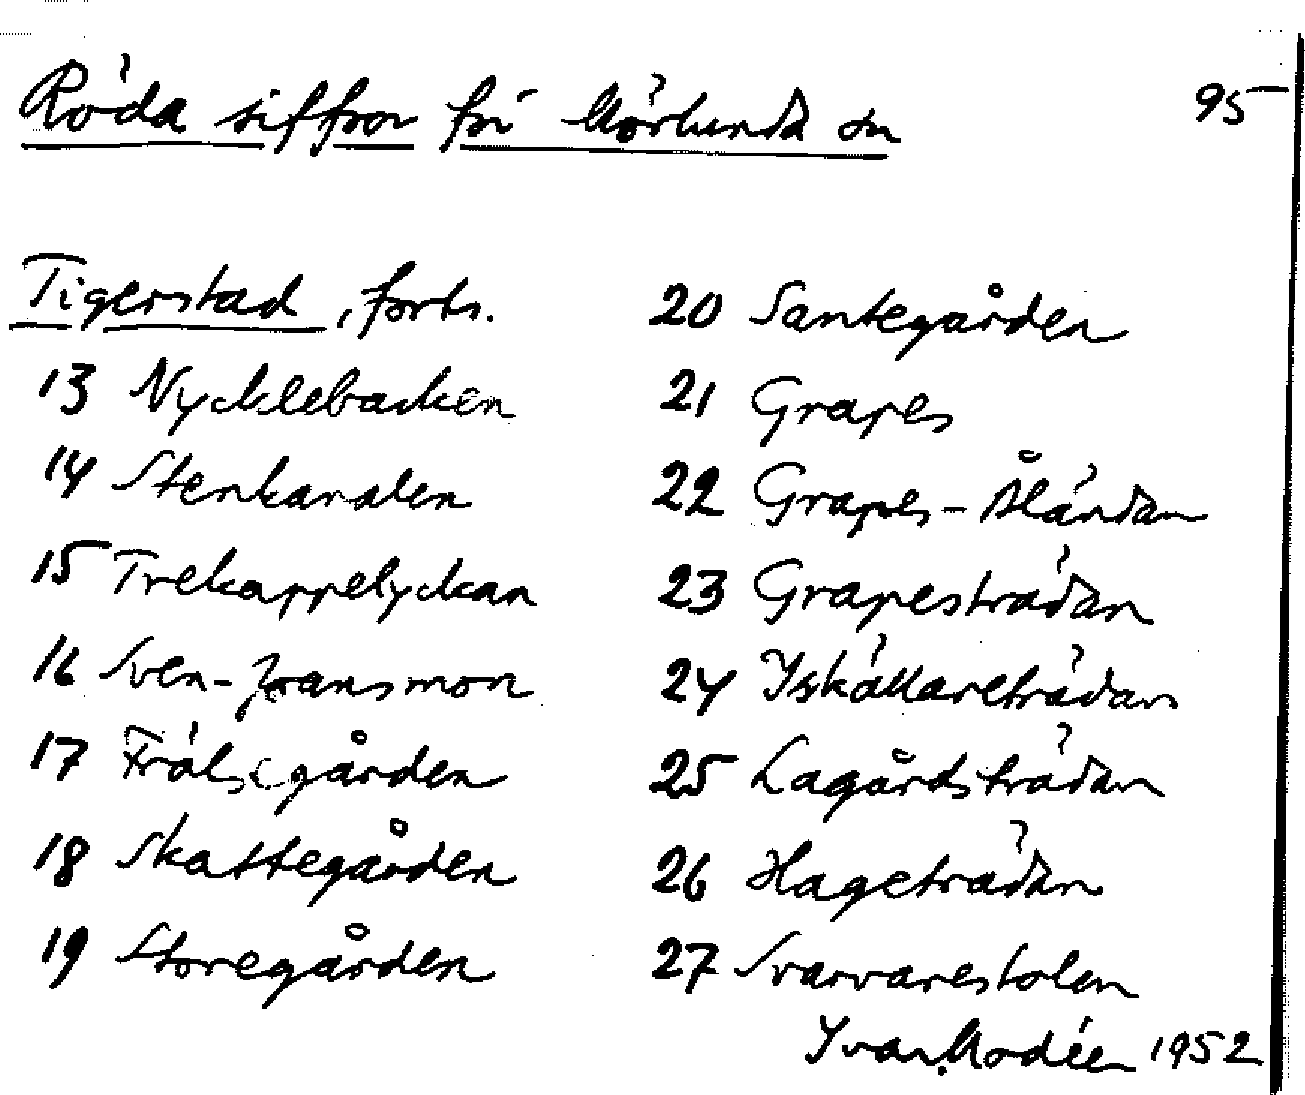 Röda siffror för Mörlunda sn
95
Tigerstad, forts.
13 Nycklebacken
14 Stenkanalen
15 Trekappelyckan
16 Sven-Fransmon
17 Frälsegården
18 Skattegården
19 Storegården
20 Santegården
21 Grapes
22 Grapes-Åländan
23 Grapesträdan
24 Yskällareträdan
25 Lagårdsträdan
26 Hageträdan
27 Svarvarestolen
Ivar Modéer 1952